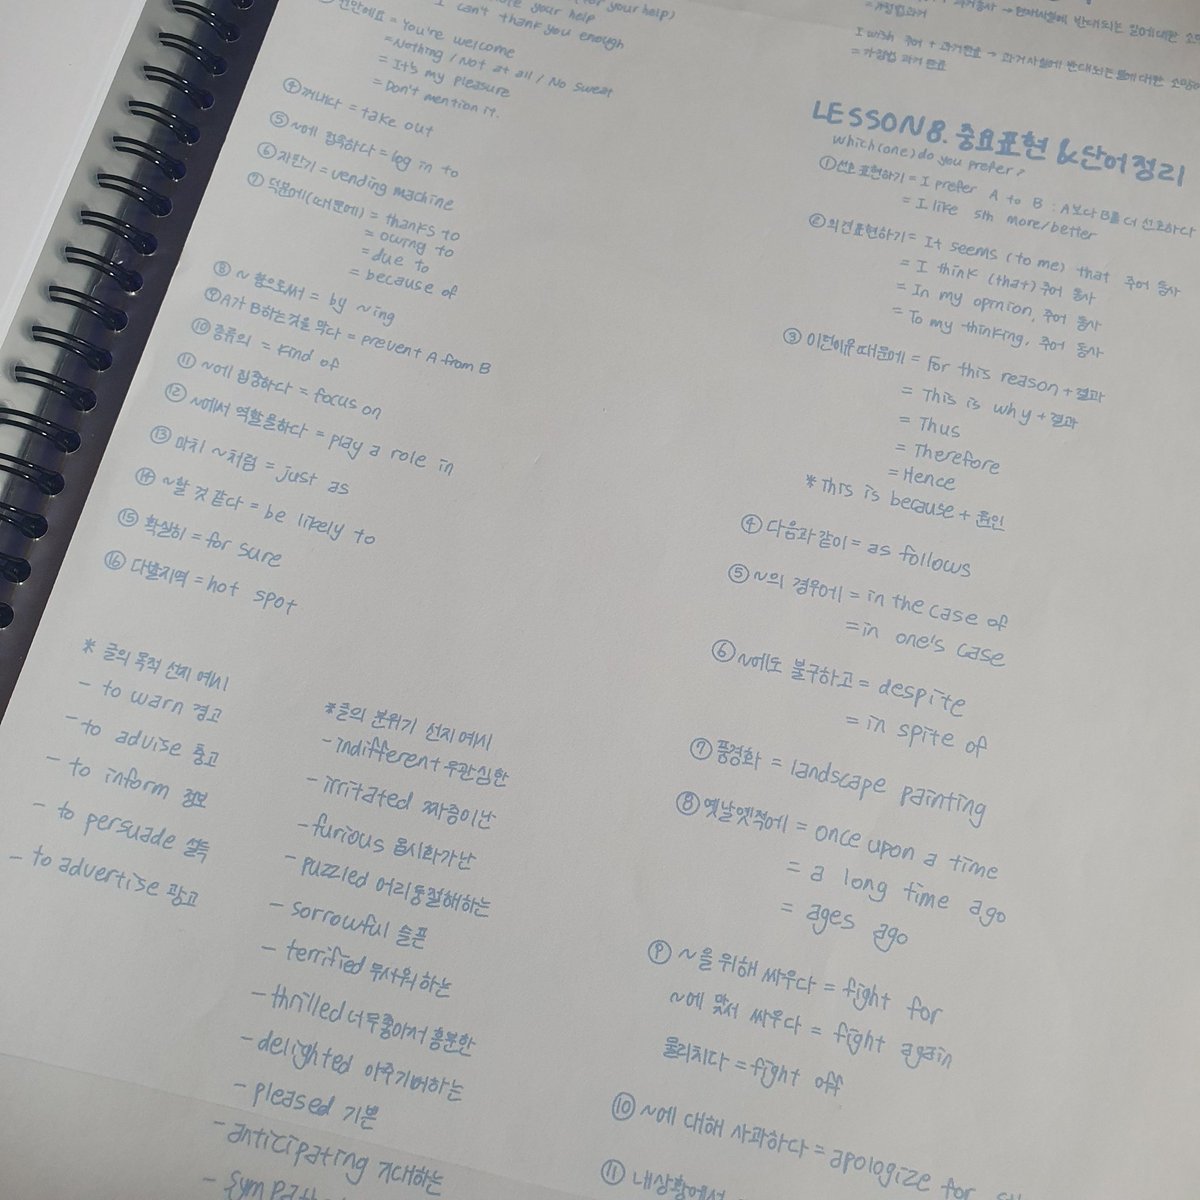 your help)
your help
I can't thank you enough
천만에요 = You're welcome
= Nothing / Not at all / No sweat
= It's my pleasure
= Don't mention it.
④ 꺼내다 = take out
⑤ ~에 접속하다 = log in to
⑥ 자판기 = vending machine
⑦ 덕분에(때문에) = thanks to
= owing to
= due to
= because of
⑧ ~함으로써 = by ~ing
⑨ A가 B하는 것을 막다 = prevent A from B
⑩ 종류의 = kind of
⑪ ~에 집중하다 = focus on
⑫ ~에서 역할을하다 = play a role in
⑬ 마치 ~처럼 = just as
⑭ ~할 것 같다 = be likely to
⑮ 확실히 = for sure
⑯ 다발지역 = hot spot
* 글의 목적 선지 예시
- to warn 경고
- to advise 충고
- to inform 정보
- to persuade 설득
- to advertise 광고
*글의 분위기 선지 예시
- indifferent 무관심한
- irritated 짜증이난
- furious 몹시화가난
- puzzled 어리둥절해하는
- sorrowful 슬픈
- terrified 무서워하는
- thrilled 너무좋아서 흥분한
- delighted 아주기뻐하는
- pleased 기쁜
- anticipating 기대하는
→ 현재사실에 반대되는 일에대한
= 가정법과거
I wish 주어 + 과거완료 → 과거사실에 반대되는 일에대한 소망
= 가정법 과거 완료
LESSON 8. 중요표현 & 단어정리
which (one) do you prefer?
① 선호 표현하기 = I prefer A to B : A보다 B를 더 선호하다
= I like sth more/better
② 의견표현하기 = It seems (to me) that 주어 동사
= I think (that) 주어 동사
= In my opinion, 주어 동사
= To my thinking, 주어 동사
③ 이런이유때문에 = for this reason + 결과
= This is why + 결과
= Thus
= Therefore
= Hence
* This is because + 원인
④ 다음과 같이 = as follows
⑤ ~의 경우에 = in the case of
= in one's case
⑥ ~에도 불구하고 = despite
= in spite of
⑦ 풍경화 = landscape painting
⑧ 옛날옛적에 = once upon a time
= a long time ago
= ages ago
⑨ ~을 위해 싸우다 = fight for
~에 맞서 싸우다 = fight again
물리치다 = fight off
⑩ ~에 대해 사과하다 = apologize for
⑪ 내상황에서